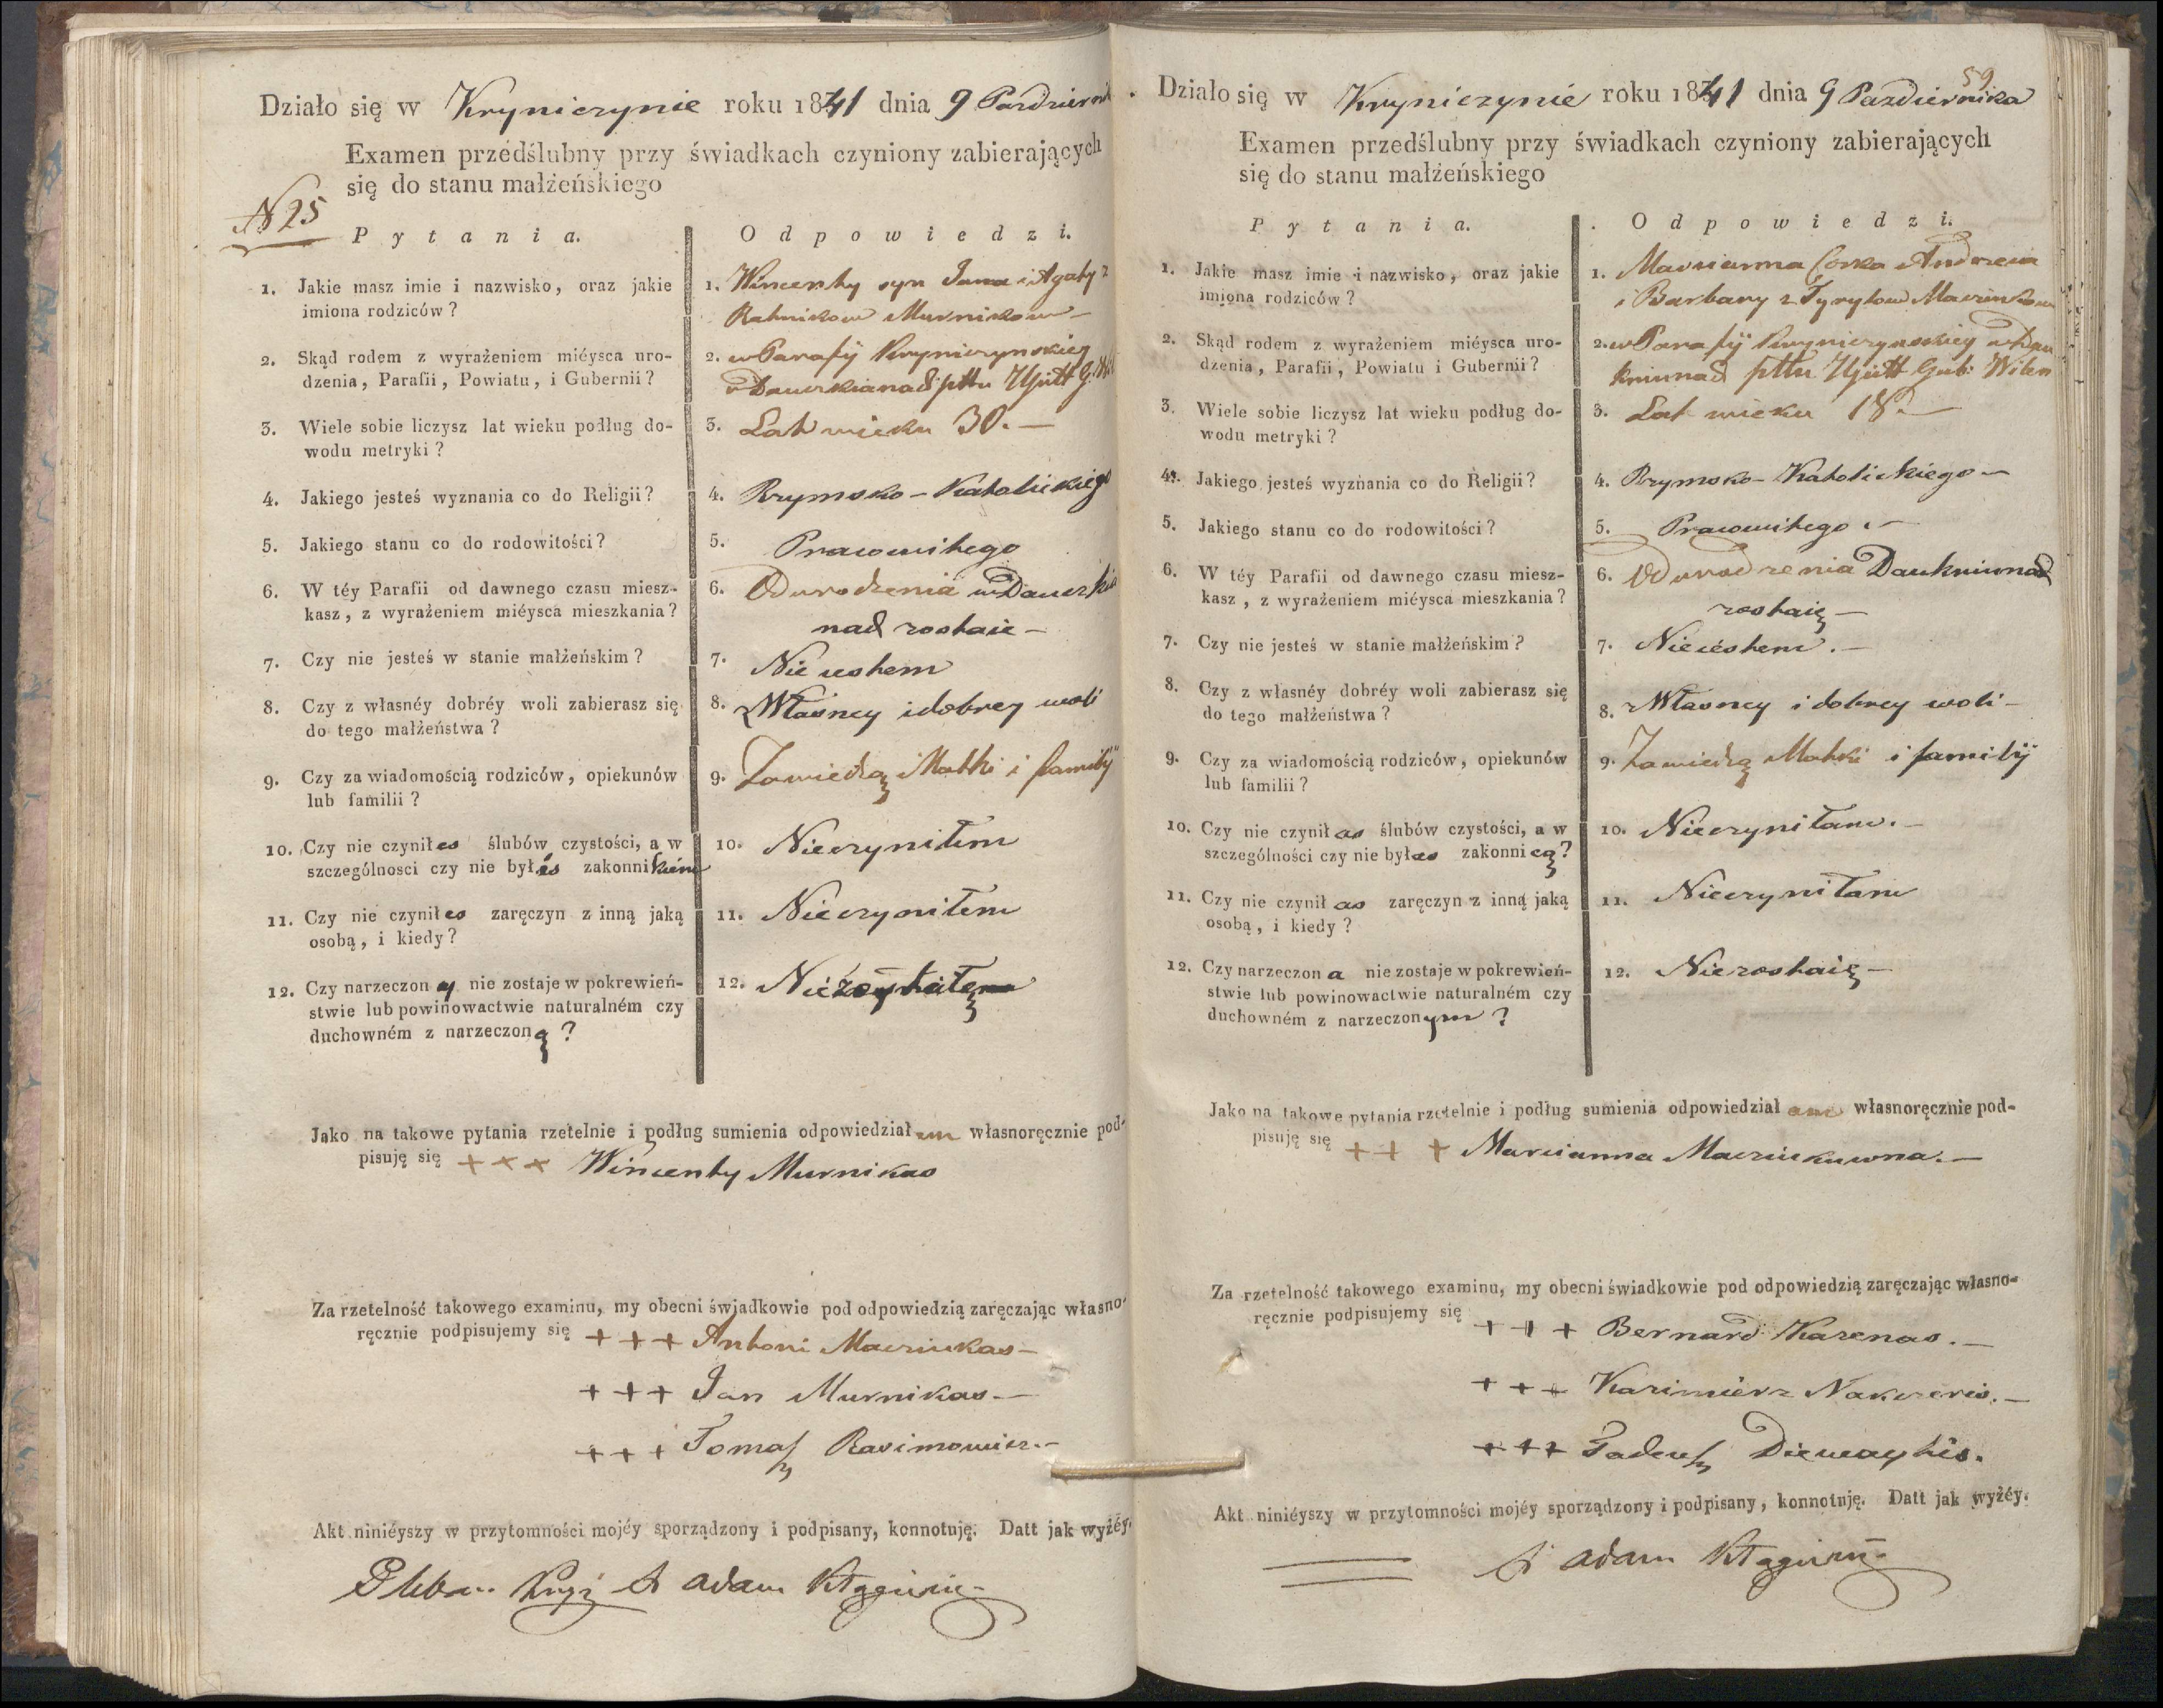 Działo się w Kryniczynie roku 1841 dnia 9 Pazdziernik
Examen przedślubny przy świadkach czyniony zabierających
się do stanu małżeńskiego
N 25
Pytania. Odpowiedzi.
1. Jakie masz imie i nazwisko, oraz jakie
imiona rodziców?
1. Wincenty syn Jana i Agaty z
Ratnikow Murnikow
2. Skąd rodem z wyrażeniem miéysca uro-
dzenia, Parafii, Powiatu, i Gubernii?
2. w Parafij Kryniczynskiey
pttu
3. Wiele sobie liczysz lat wieku podług do-
wodu metryki?
3. Lat wieku 30.
4. Jakiego jesteś wyznania co do Religii?
4. Rzymsko-Katolickiego
5. Jakiego stanu co do rodowitości?
5. Prawowitego
6. W téy Parafii od dawnego czasu miesz-
kasz, z wyrażeniem miéysca mieszkania?
6. Od urodzenia w
nad zostaie
7. Czy nie jesteś w stanie małżeńskim?
7. Nie iestem
8. Czy z własnéy dobréy woli zabierasz się
do tego małżeństwa?
8. z Własney i dobrey woli
9. Czy za wiadomością rodziców, opiekunów
lub familii?
9. Za wiedzą Matki i familij
10. Czy nie czyniłes ślubów czystości, a w
szczególnosci czy nie byłés zakonnikiem
10. Nieczyniłem
11. Czy nie czyniłes zaręczyn z inną jaką
osobą, i kiedy?
11. Nieczyniłem
12. Czy narzeczony nie zostaje w pokrewień-
stwie lub powinowactwie naturalném czy
duchowném z narzeczoną?
12.
Jako na takowe pytania rzetelnie i podług sumienia odpowiedziałem własnoręcznie pod-
pisuję się +++ Wincenty Murnikas
Za rzetelność takowego examinu, my obecni świadkowie pod odpowiedzią zaręczając własno-
ręcznie podpisujemy się +++ Antoni Macziukas
+++ Jan Murnikas
+++ Tomasz Rasimowicz
Akt niniéyszy w przytomności mojéy sporządzony i podpisany, konnotuję. Datt jak wyżéy.
Adam
59
Działo się w Kryniczynie roku 1841 dnia 9 Pazdziernika
Examen przedślubny przy świadkach czyniony zabierających
się do stanu małżeńskiego
Pytania. Odpowiedzi.
1. Jakie masz imie i nazwisko, oraz jakie
imiona rodziców?
1. Marcianna Corka Andrzeia
i Barbary z
2. Skąd rodem z wyrażeniem miéysca uro-
dzenia, Parafii, Powiatu i Gubernii?
2. w Parafij Kryniczynskiey w Dau
kniunad pttu Gub: Wilen
3. Wiele sobie liczysz lat wieku podług do-
wodu metryki?
3. Lat wieku 18.
4. Jakiego jesteś wyznania co do Religii?
4. Rzymsko-Katolickiego
5. Jakiego stanu co do rodowitości?
5. Prawowitego
6. W téy Parafii od dawnego czasu miesz-
kasz, z wyrażeniem miéysca mieszkania?
6. Od urodzenia Daukniunad
zostaię
7. Czy nie jesteś w stanie małżeńskim?
7. Nie iestem.
8. Czy z własnéy dobréy woli zabierasz się
do tego małżeństwa?
8. z Własney i dobrey woli
9. Czy za wiadomością rodziców, opiekunów
lub familii?
9. Za wiedzą Matki i familij
10. Czy nie czyniłas ślubów czystości, a w
szczególności czy nie byłas zakonnicą?
10. Nieczyniłam.
11. Czy nie czyniłas zaręczyn z inną jaką
osobą, i kiedy?
11. Nieczyniłam
12. Czy narzeczona nie zostaje w pokrewień-
stwie lub powinowactwie naturalném czy
duchowném z narzeczonym?
12. Niezostaię
Jako na takowe pytania rzetelnie i podług sumienia odpowiedziałam własnoręcznie pod-
pisuję się +++ Marcianna Macziukuwna.
Za rzetelność takowego examinu, my obecni świadkowie pod odpowiedzią zaręczając własno-
ręcznie podpisujemy się +++ Bernard Karenas.
+++ Kazimierz
+++ Tadeusz
Akt niniéyszy w przytomności mojéy sporządzony i podpisany, konnotuję. Datt jak wyżéy.
Adam